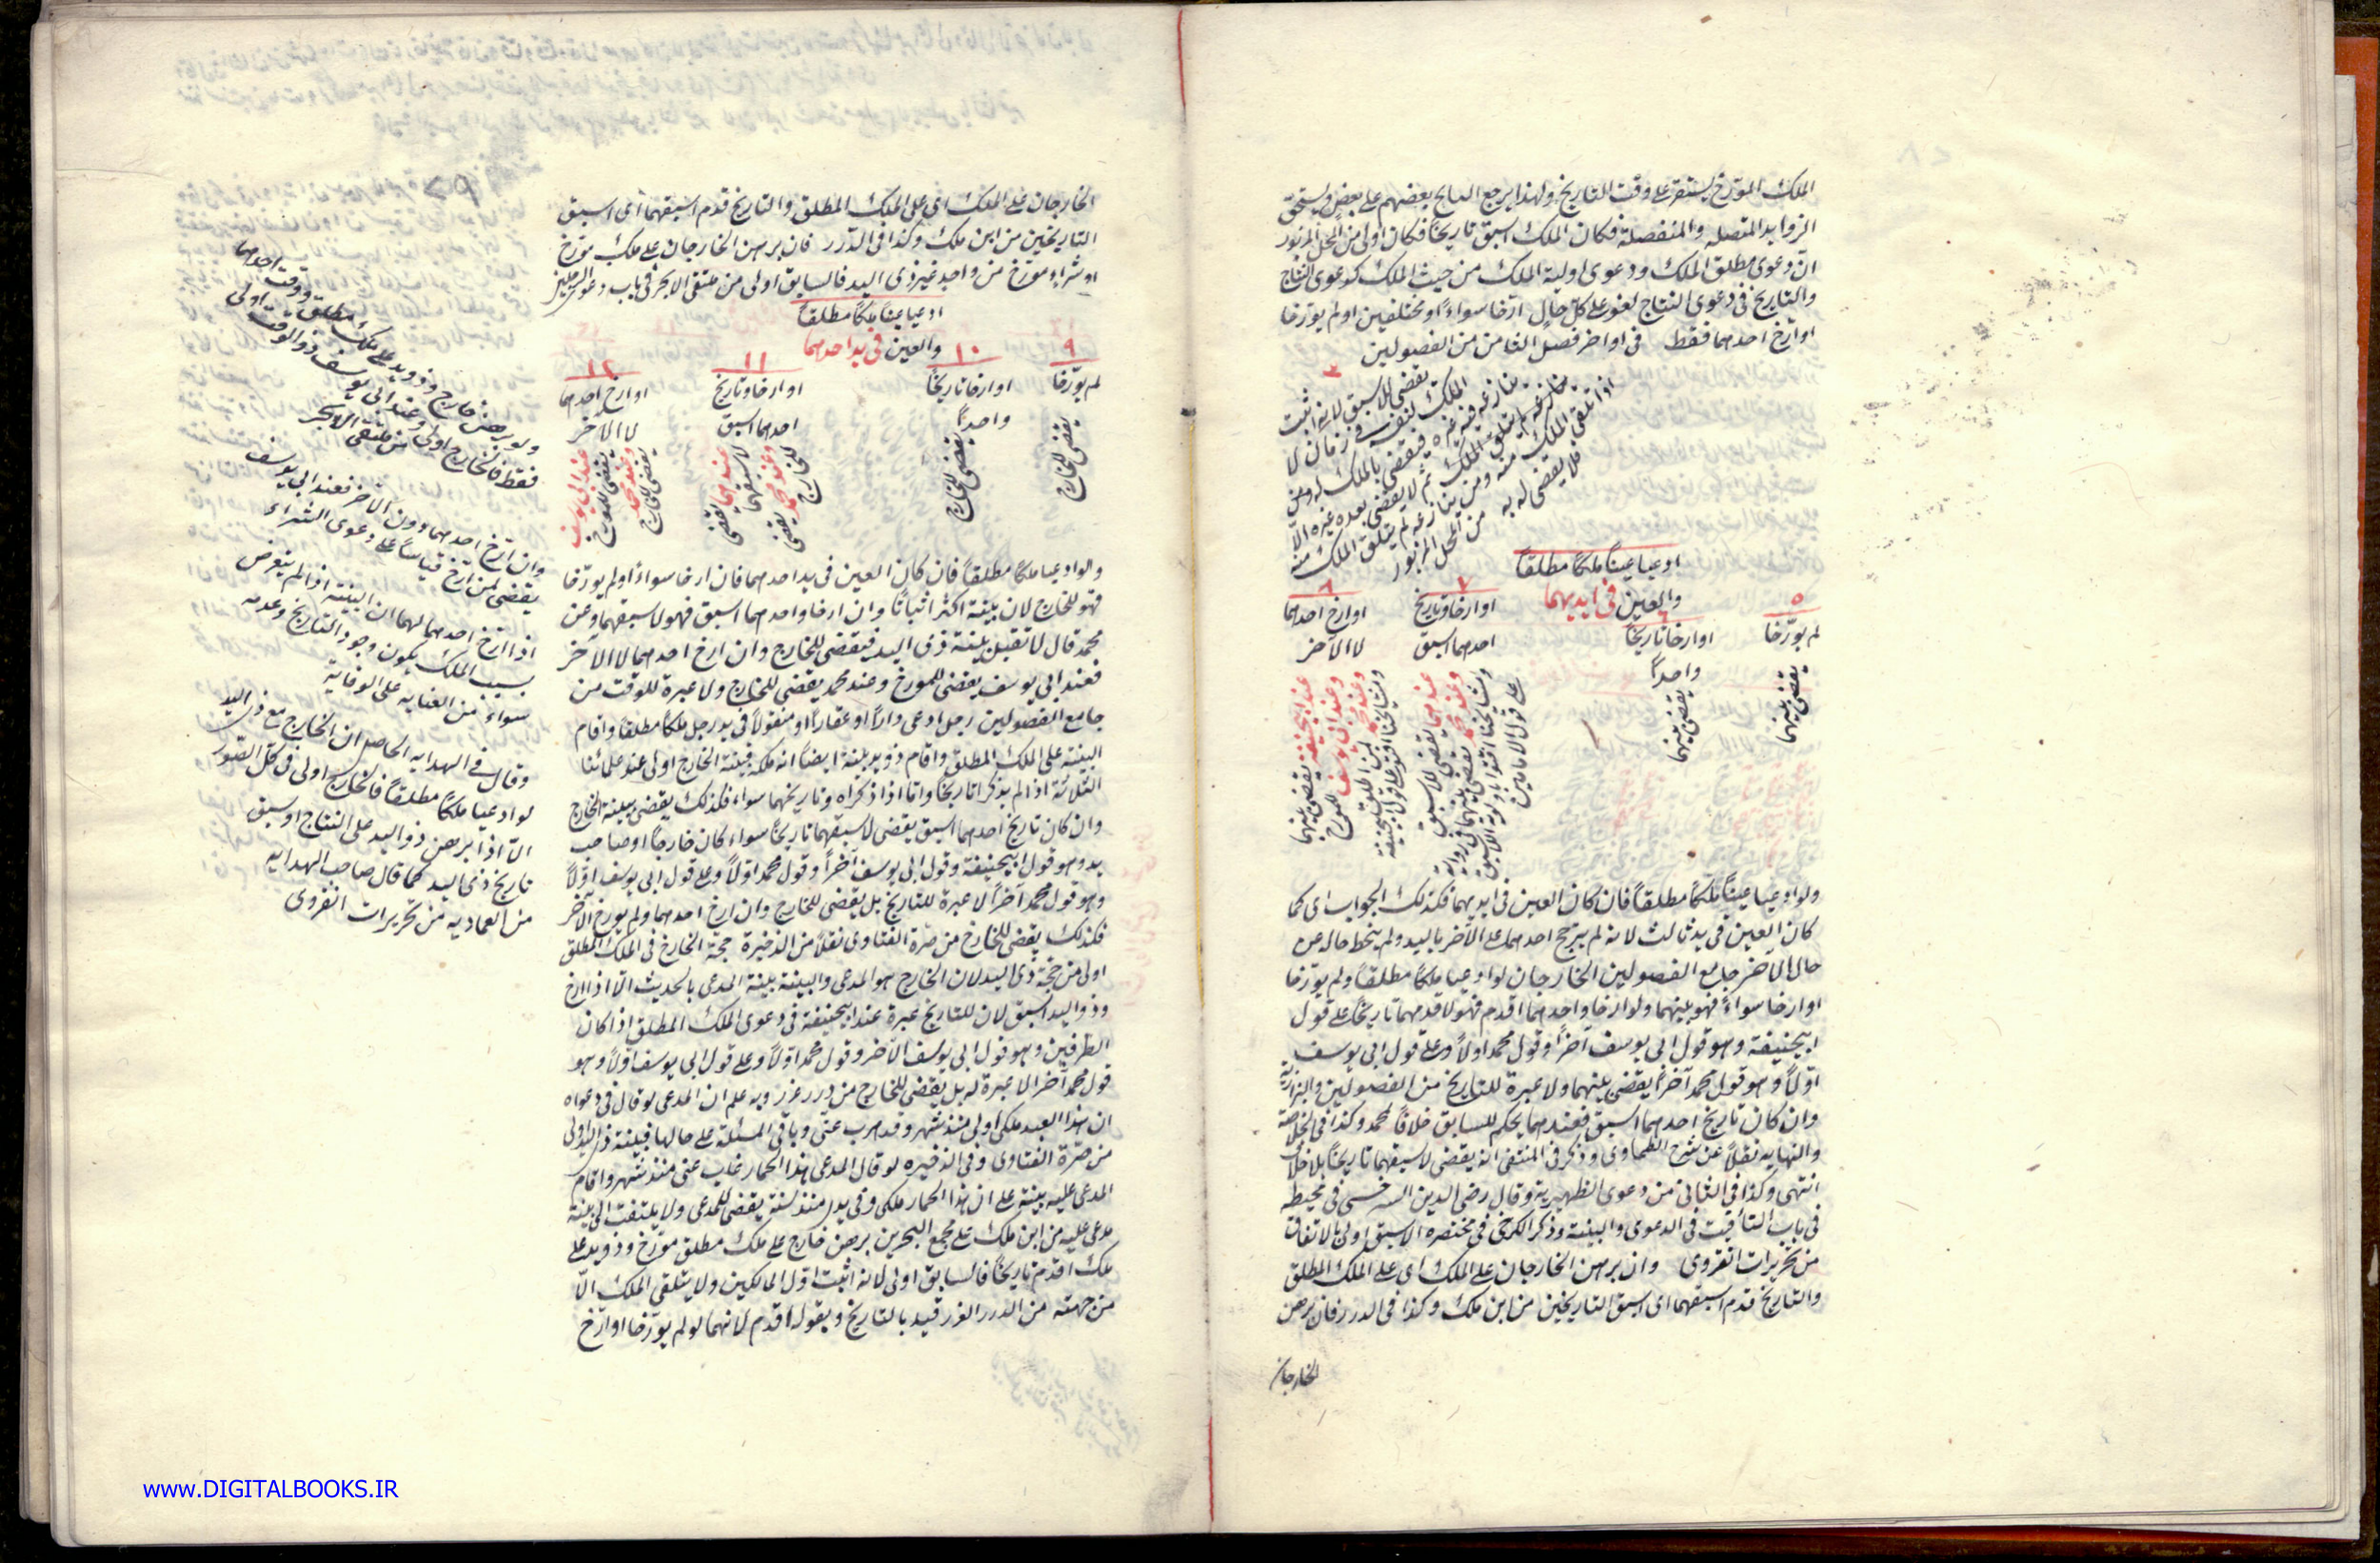 الملك المورّخ يستقر على وقت التاريخ ولهذا يرجع البايع بعضهم على بعض ويستحق
الزوايد المتصله والمنفصلة فكان الملك اسبق تاريخاً فكان اولى من المحل المزبور
انّ دعوى مطلق الملك ودعوى اولية الملك من حيث الملك كدعوى النتاج
والتاريخ فى دعوى النتاج لغو على كل حال ارّخا سواءً او مختلفين او لم يورّخا
او ارّخ احدهما فقط فى اواخر فصل الثامن من الفصولين
يقضى للاسبق لانه اثبت
الملك لنفسه فى زمان لا
ينازعه فيه غيره فيقضى بالملك له
ثم لا يقضى بعده لغيره الّا
اذا تلقى الملك منه ومن ينازعه لم يتلق الملك منه
فلا يقضى له به من المحل المزبور
ادعيا عيناً ملكاً مطلقاً
والعين فى ايديهما
٥
لم يورّخا
يقضى بينهما
٦
او ارخا تاريخاً
واحداً
يقضى بينهما
٧
او ارخا وتاريخ
احدهما اسبق
عندهما يقضى للاسبق
وعند محمد يقضى بينهما فى رواية
ومشايخنا افتوا باولوية الاسبق
على قول الامامين
٨
او ارخ احدهما
لا الآخر
عند ابيحنيفه يقضى بينهما
وعند ابى يوسف للمورخ
وعند محمد لمن اطلق
ومشايخنا افتوا على قول ابيحنيفة
ولو ادعيا عيناً ملكاً مطلقاً فان كان العين فى ايديهما فكذلك الجواب اى كما
كان العين فى يد ثالث لانه لم يترجح احدهما على الآخر باليد ولم ينحط حاله عن
حال الآخر جامع الفصولين الخارجان لو ادعيا ملكاً مطلقاً ولم يورّخا
او ارخا سواءً فهو بينهما ولو ارخا واحدهما اقدم فهو لاقدمهما تاريخاً على قول
ابيحنيفة وهو قول ابى يوسف آخراً وقول محمد اولاً وعلى قول ابى يوسف
اوّلاً وهو قول محمد آخراً يقضى بينهما ولا عبرة للتاريخ من الفصولين والبزازية
وان كان تاريخ احدهما اسبق فعندهما يحكم للسابق خلافاً لمحمد وكذا فى الخلاصة
والنهايه نقلاً عن شرح الطحاوى وذكر فى المنتقى انه يقضى لاسبقهما تاريخاً بلا خلاف
انتهى وكذا فى الثانى من دعوى الظهيرية وقال رضى الدين السرخسى فى محيطه
فى باب التأقيت فى الدعوى والبينة وذكر الكرخى فى مختصره الاسبق اولى بالاتفاق
من تحريرات انقروى وان برهن الخارجان على الملك اى على الملك المطلق
والتاريخ قدم اسبقهما اى اسبق التاريخين من ابن ملك وكذا فى الدرر فان برهن
الخارجان
الخارجان على الملك اى على الملك المطلق والتاريخ قدم اسبقهما اى اسبق
التاريخين من ابن ملك وكذا فى الدرر فان برهن الخارجان على ملك مورّخ
او شراء مورّخ من واحد غير ذى اليد فالسابق اولى من ملتقى الابحر فى باب دعوى الرجلين
ادعيا عيناً ملكاً مطلقاً
والعين فى يد احدهما
٩
لم يورّخا
يقضى للخارج
١٠
او ارخا تاريخاً
واحداً
يقضى للخارج
١١
او ارخا وتاريخ
احدهما اسبق
عندهما يقضى لاسبقهما
وعند محمد يقضى للخارج
١٢
او ارخ احدهما
لا الآخر
عند ابى يوسف يقضى للمورخ
وعند محمد يقضى للخارج
ولو ادعيا ملكاً مطلقاً فان كان العين فى يد احدهما فان ارخا سواءً او لم يورّخا
فهو للخارج لان بينة اكثر اثباتاً وان ارخا واحدهما اسبق فهو لاسبقهما وعن
محمد قال لا تقبل بينة ذى اليد فيقضى للخارج وان ارخ احدهما لا الآخر
فعند ابى يوسف يقضى للمورخ وعند محمد يقضى للخارج ولا عبرة للوقت من
جامع الفصولين رجل ادعى داراً او عقاراً او منقولاً فى يد رجل ملكاً مطلقاً واقام
البينة على الملك المطلق واقام ذو يد بينة ايضاً انه ملكه فبينة الخارج اولى عند علمائنا
الثلاثة اذا لم يذكرا تاريخاً واما اذا ذكراه وتاريخهما سواء فكذلك يقضى ببينة الخارج
وان كان تاريخ احدهما اسبق يقضى لاسبقهما تاريخاً سواء كان خارجاً او صاحب
يد وهو قول ابيحنيفة وقول ابى يوسف آخراً وقول محمد اوّلاً وعلى قول ابى يوسف اوّلاً
وهو قول محمد آخراً لا عبرة للتاريخ بل يقضى للخارج وان ارخ احدهما ولم يورخ الآخر
فكذلك يقضى للخارج من صرة الفتاوى نقلاً من الذخيرة حجة الخارج فى الملك المطلق
اولى من حجة ذى اليد لان الخارج هو المدعى والبينة بينة المدعى بالحديث الّا اذا ارخ
وذو اليد اسبق لان للتاريخ عبرة عند ابيحنيفة فى دعوى الملك المطلق اذا كان
الطرفين وهو قول ابى يوسف الآخر وقول محمد اوّلاً وعلى قول ابى يوسف اوّلاً وهو
قول محمد آخراً لا عبرة له بل يقضى للخارج من درر غرر وبه علم ان المدعى لو قال فى دعواه
ان هذا العبد ملكى اولى منذ شهر وقد هرب عنى وباقى المسئلة على حالها فبينة ذى اليد اولى
من صرة الفتاوى وفى الذخيره لو قال المدعى هذا الحمار غاب عنى منذ شهر واقام
المدعى عليه بينة على ان هذا الحمار ملكى وفى يدى منذ سنة يقضى للمدعى ولا يلتفت الى بينة
مدعى عليه من ابن ملك على مجمع البحرين برهن خارج على ملك مطلق مورّخ وذو يد على
ملك اقدم تاريخاً فالسابق اولى لانه اثبت اوّل المالكين ولا يتلقى الملك الّا
من جهته من الدرر الغرر قيد بالتاريخ وبقوله اقدم لانهما لو لم يورّخا او ارّخ
ولو برهن خارج وذو يد على ملك مطلق ووقت احدهما
فقط فالخارج اولى وعند ابى يوسف ذو الوقت اولى
من ملتقى الابحر
وان ارّخ احدهما دون الآخر فعند ابى يوسف
يقضى لمن ارّخ قياساً على دعوى الشراء
اذا ارّخ احدهما لهما ان البينة اذا لم يتعرض
بسبب الملك يكون وجود التاريخ وعدمه
سواءً من العنايه على الوقاية
وقال فى الهدايه الحاصل ان الخارج مع ذى اليد
لو ادعيا ملكاً مطلقاً فالخارج اولى فى كل الصور
الّا اذا برهن ذو اليد على النتاج او سبق
تاريخ ذى اليد كما قال صاحب الهدايه
من العماديه من تحريرات انقروى
www.DIGITALBOOKS.IR